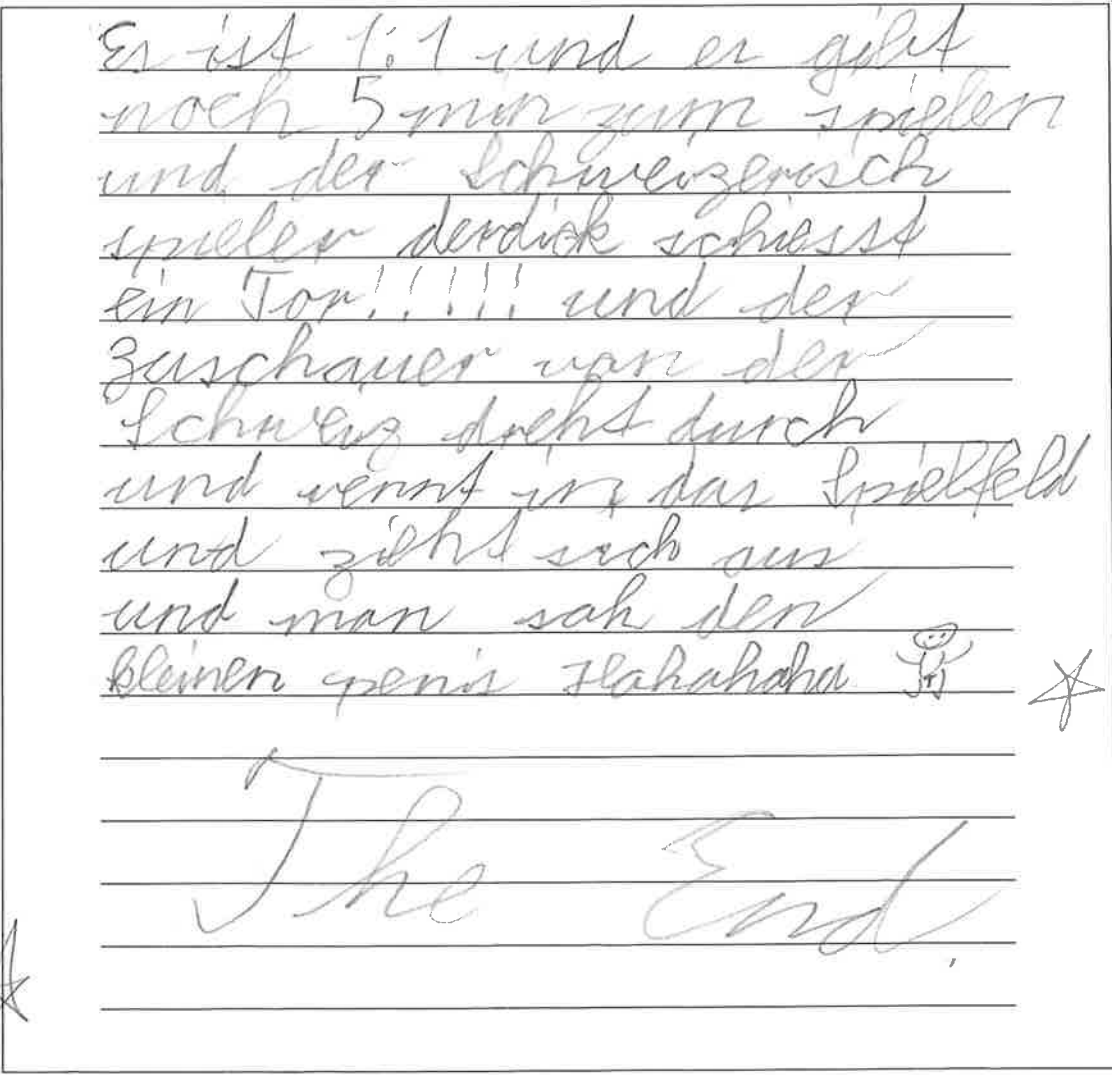 Es ist 1:1 und er gibt
noch 5 min zum spielen
und der Schweizerisch
spieler derdiok schiesst
ein Tor!!!!!! und der
Zuschauer von der
Schweiz dreht durch
und rennt in das Spielfeld
und zieht sich aus
und man sah den
kleinen penis Hahahaha
The End.